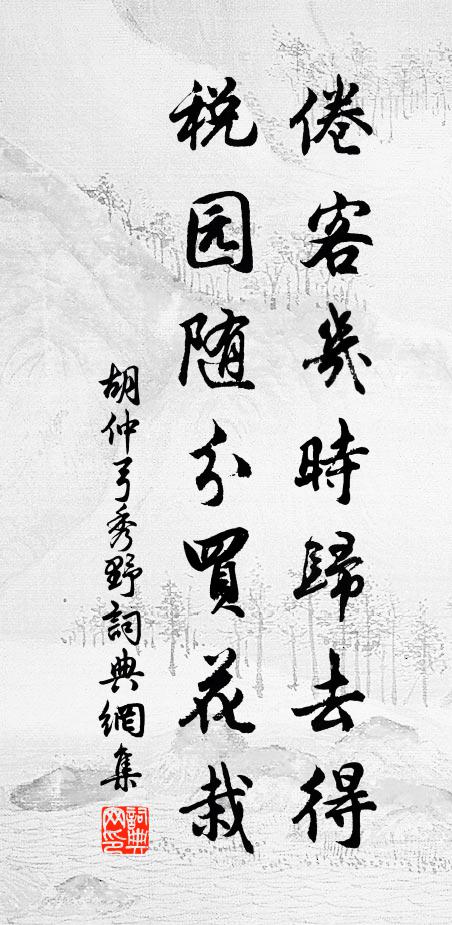 倦客幾時歸去得
税园随分買花栽
胡仲弓秀野詞典網集
詞典网印